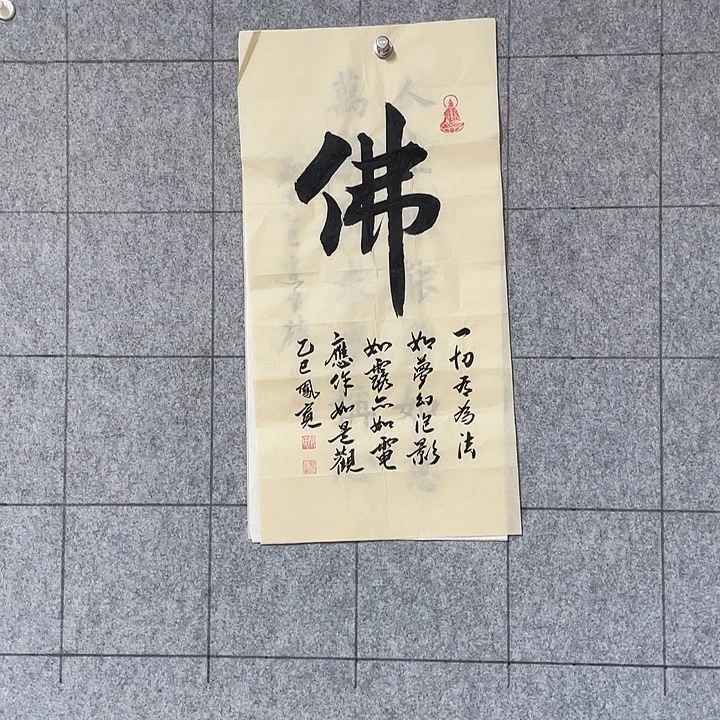 佛
一切有為法
如夢幻泡影
如露亦如電
應作如是觀
乙巳鳳寬